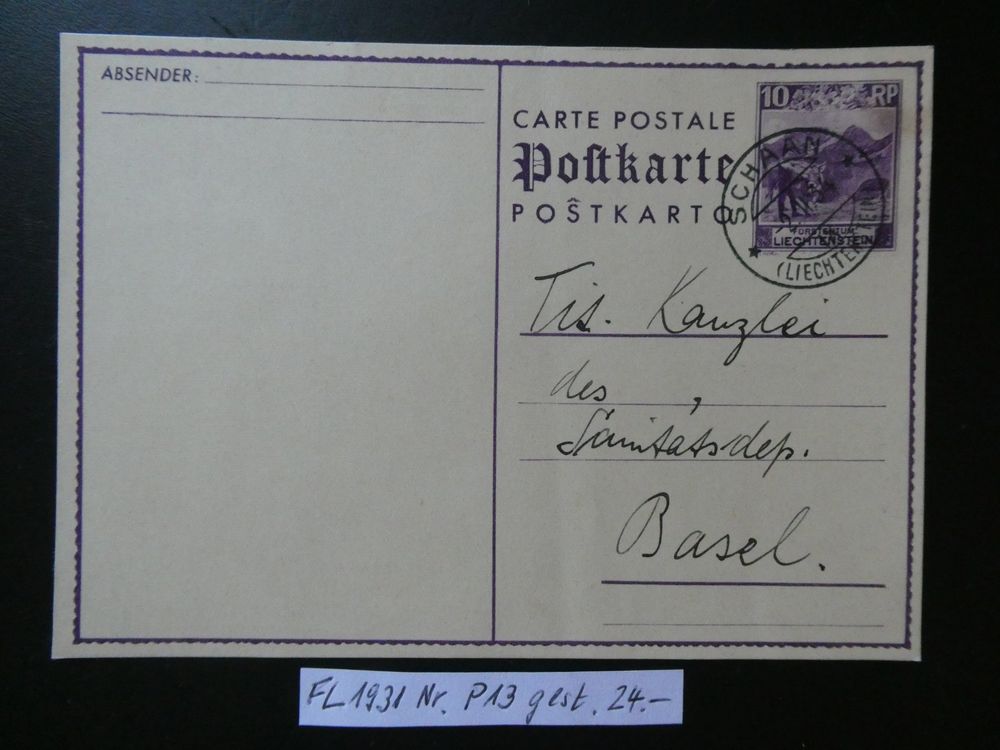 ABSENDER:
CARTE POSTALE
Postkarte
POŜTKARTO
10 RP
FÜRSTENTUM
LIECHTENSTEIN
SCHAAN
(LIECHTENSTEIN)
Tit. Kanzlei
des
Sanitätsdep.
Basel.
FL 1931 Nr. P13 gest. 24.-